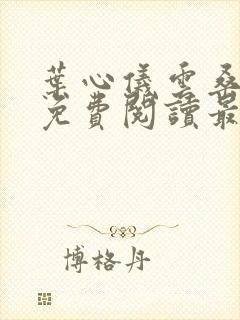 葉心儀雲桑
免費閱讀最
博格丹